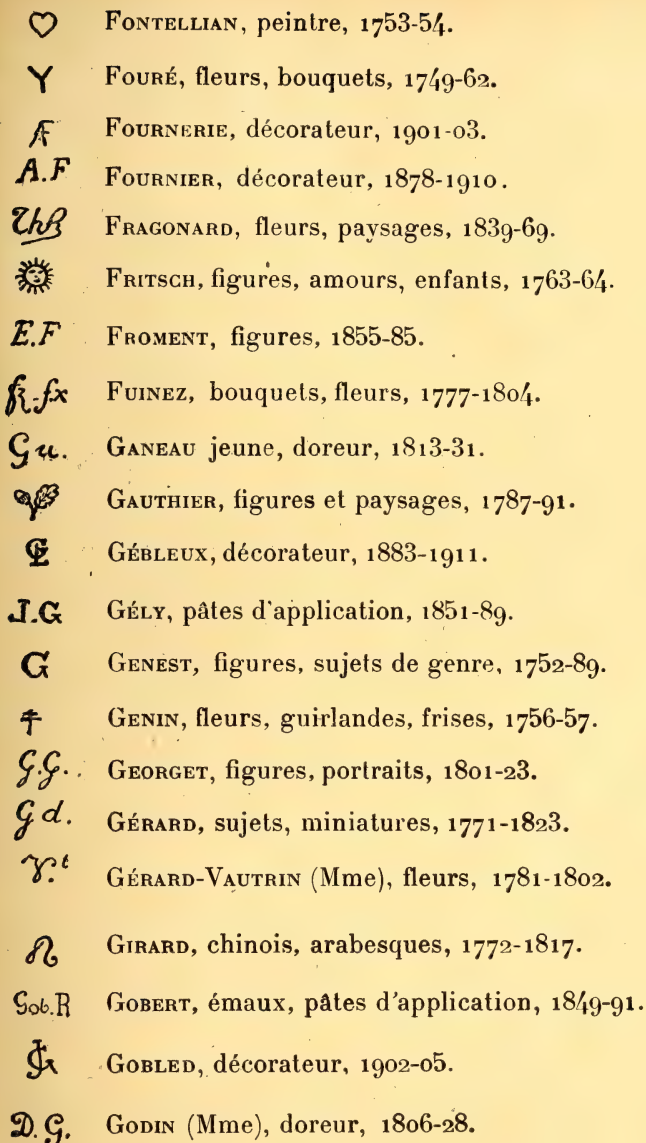 FONTELLIAN, peintre, 1753-54.
Y FOURÉ, fleurs, bouquets, 1749-62.
AF FOURNERIE, décorateur, 1901-03.
A.F FOURNIER, décorateur, 1878-1910.
FRAGONARD, fleurs, paysages, 1839-69.
FRITSCH, figures, amours, enfants, 1763-64.
E.F FROMENT, figures, 1855-85.
FUINEZ, bouquets, fleurs, 1777-1804.
Gu. GANEAU jeune, doreur, 1813-31.
GAUTHIER, figures et paysages, 1787-91.
GÉBLEUX, décorateur, 1883-1911.
J.G GÉLY, pâtes d'application, 1851-89.
G GENEST, figures, sujets de genre, 1752-89.
GENIN, fleurs, guirlandes, frises, 1756-57.
G.G. GEORGET, figures, portraits, 1801-23.
Gd. GÉRARD, sujets, miniatures, 1771-1823.
GÉRARD-VAUTRIN (Mme), fleurs, 1781-1802.
GIRARD, chinois, arabesques, 1772-1817.
Gob.R GOBERT, émaux, pâtes d'application, 1849-91.
GOBLED, décorateur, 1902-05.
D.G. GODIN (Mme), doreur, 1806-28.